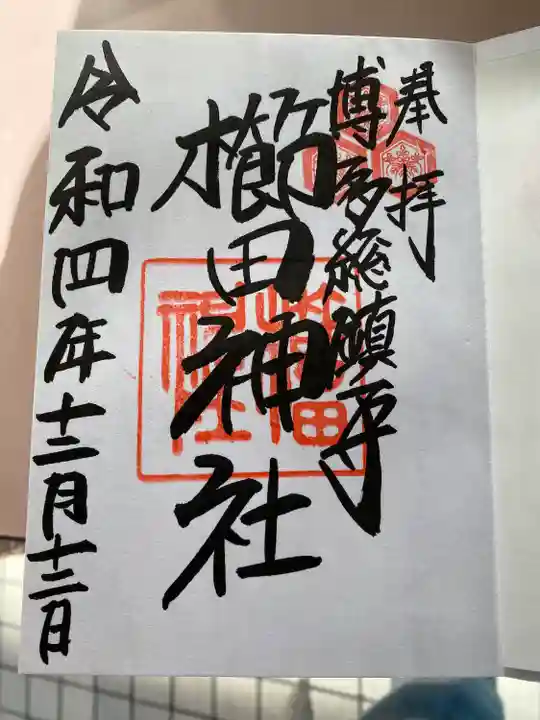 奉拝
博多総鎮守
櫛田神社
令和四年十二月十二日
櫛田
神社